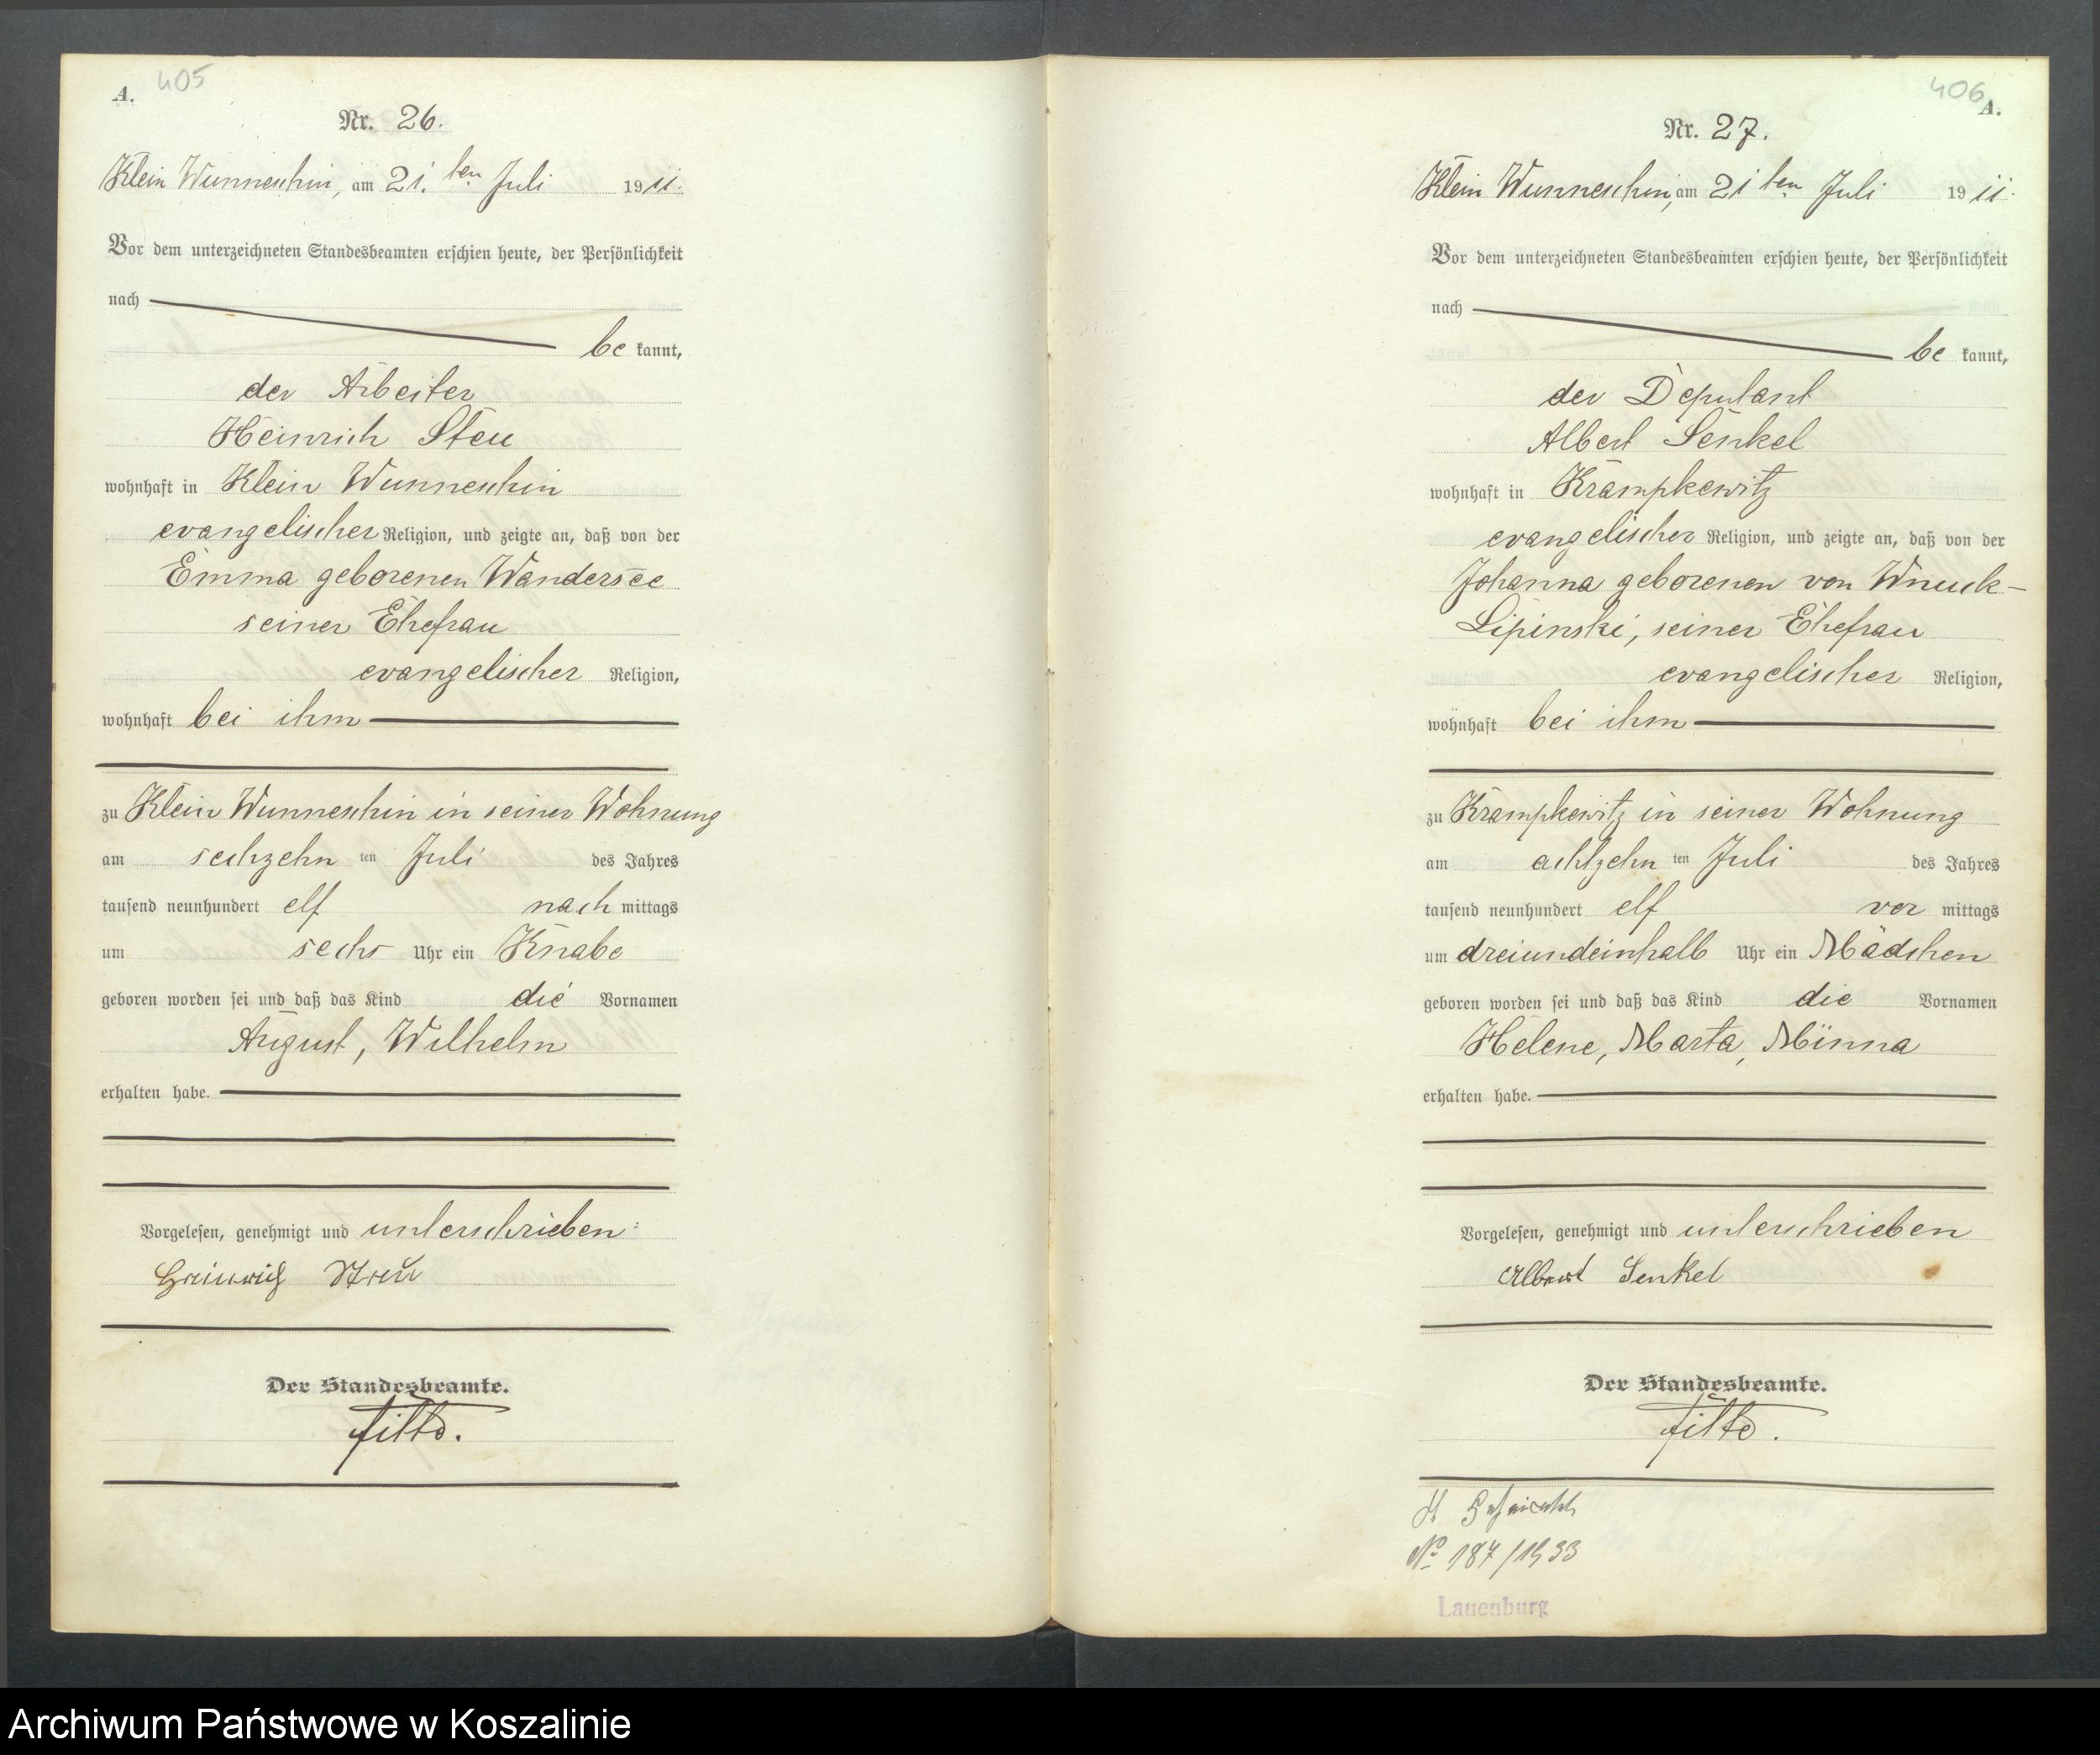 A. 405
Nr. 26.
Klein Wunneschin, am 21. ten Juli 1911.
Vor dem unterzeichneten Standesbeamten erschien heute, der Persönlichkeit
nach
be kannt,
der Arbeiter
Heinrich Steu
wohnhaft in Klein Wunneschin
evangelischer Religion, und zeigte an, daß von der
Emma geborenen Wandersee
seiner Ehefrau
evangelischer Religion,
wohnhaft bei ihm
zu Klein Wunneschin in seiner Wohnung
am sechzehn ten Juli des Jahres
tausend neunhundert elf nach mittags
um sechs Uhr ein Knabe
geboren worden sei und daß das Kind die Vornamen
August, Wilhelm
erhalten habe.
Vorgelesen, genehmigt und unterschrieben:
Heinrich Steu
Der Standesbeamte.
406 A.
Nr. 27.
Klein Wunneschin, am 21 ten Juli 1911.
Vor dem unterzeichneten Standesbeamten erschien heute, der Persönlichkeit
nach
be kannt,
der Deputant
Albert Senkel
wohnhaft in Krampkewitz
evangelischer Religion, und zeigte an, daß von der
Johanna geborenen von Wnuck-
Lipinski, seiner Ehefrau
evangelischer Religion,
wohnhaft bei ihm
zu Krampkewitz in seiner Wohnung
am achtzehn ten Juli des Jahres
tausend neunhundert elf vor mittags
um dreiundeinhalb Uhr ein Mädchen
geboren worden sei und daß das Kind die Vornamen
Helene, Marta, Minna
erhalten habe.
Vorgelesen, genehmigt und unterschrieben
Albert Senkel
Der Standesbeamte.
No 187/1933
Lauenburg
Archiwum Państwowe w Koszalinie